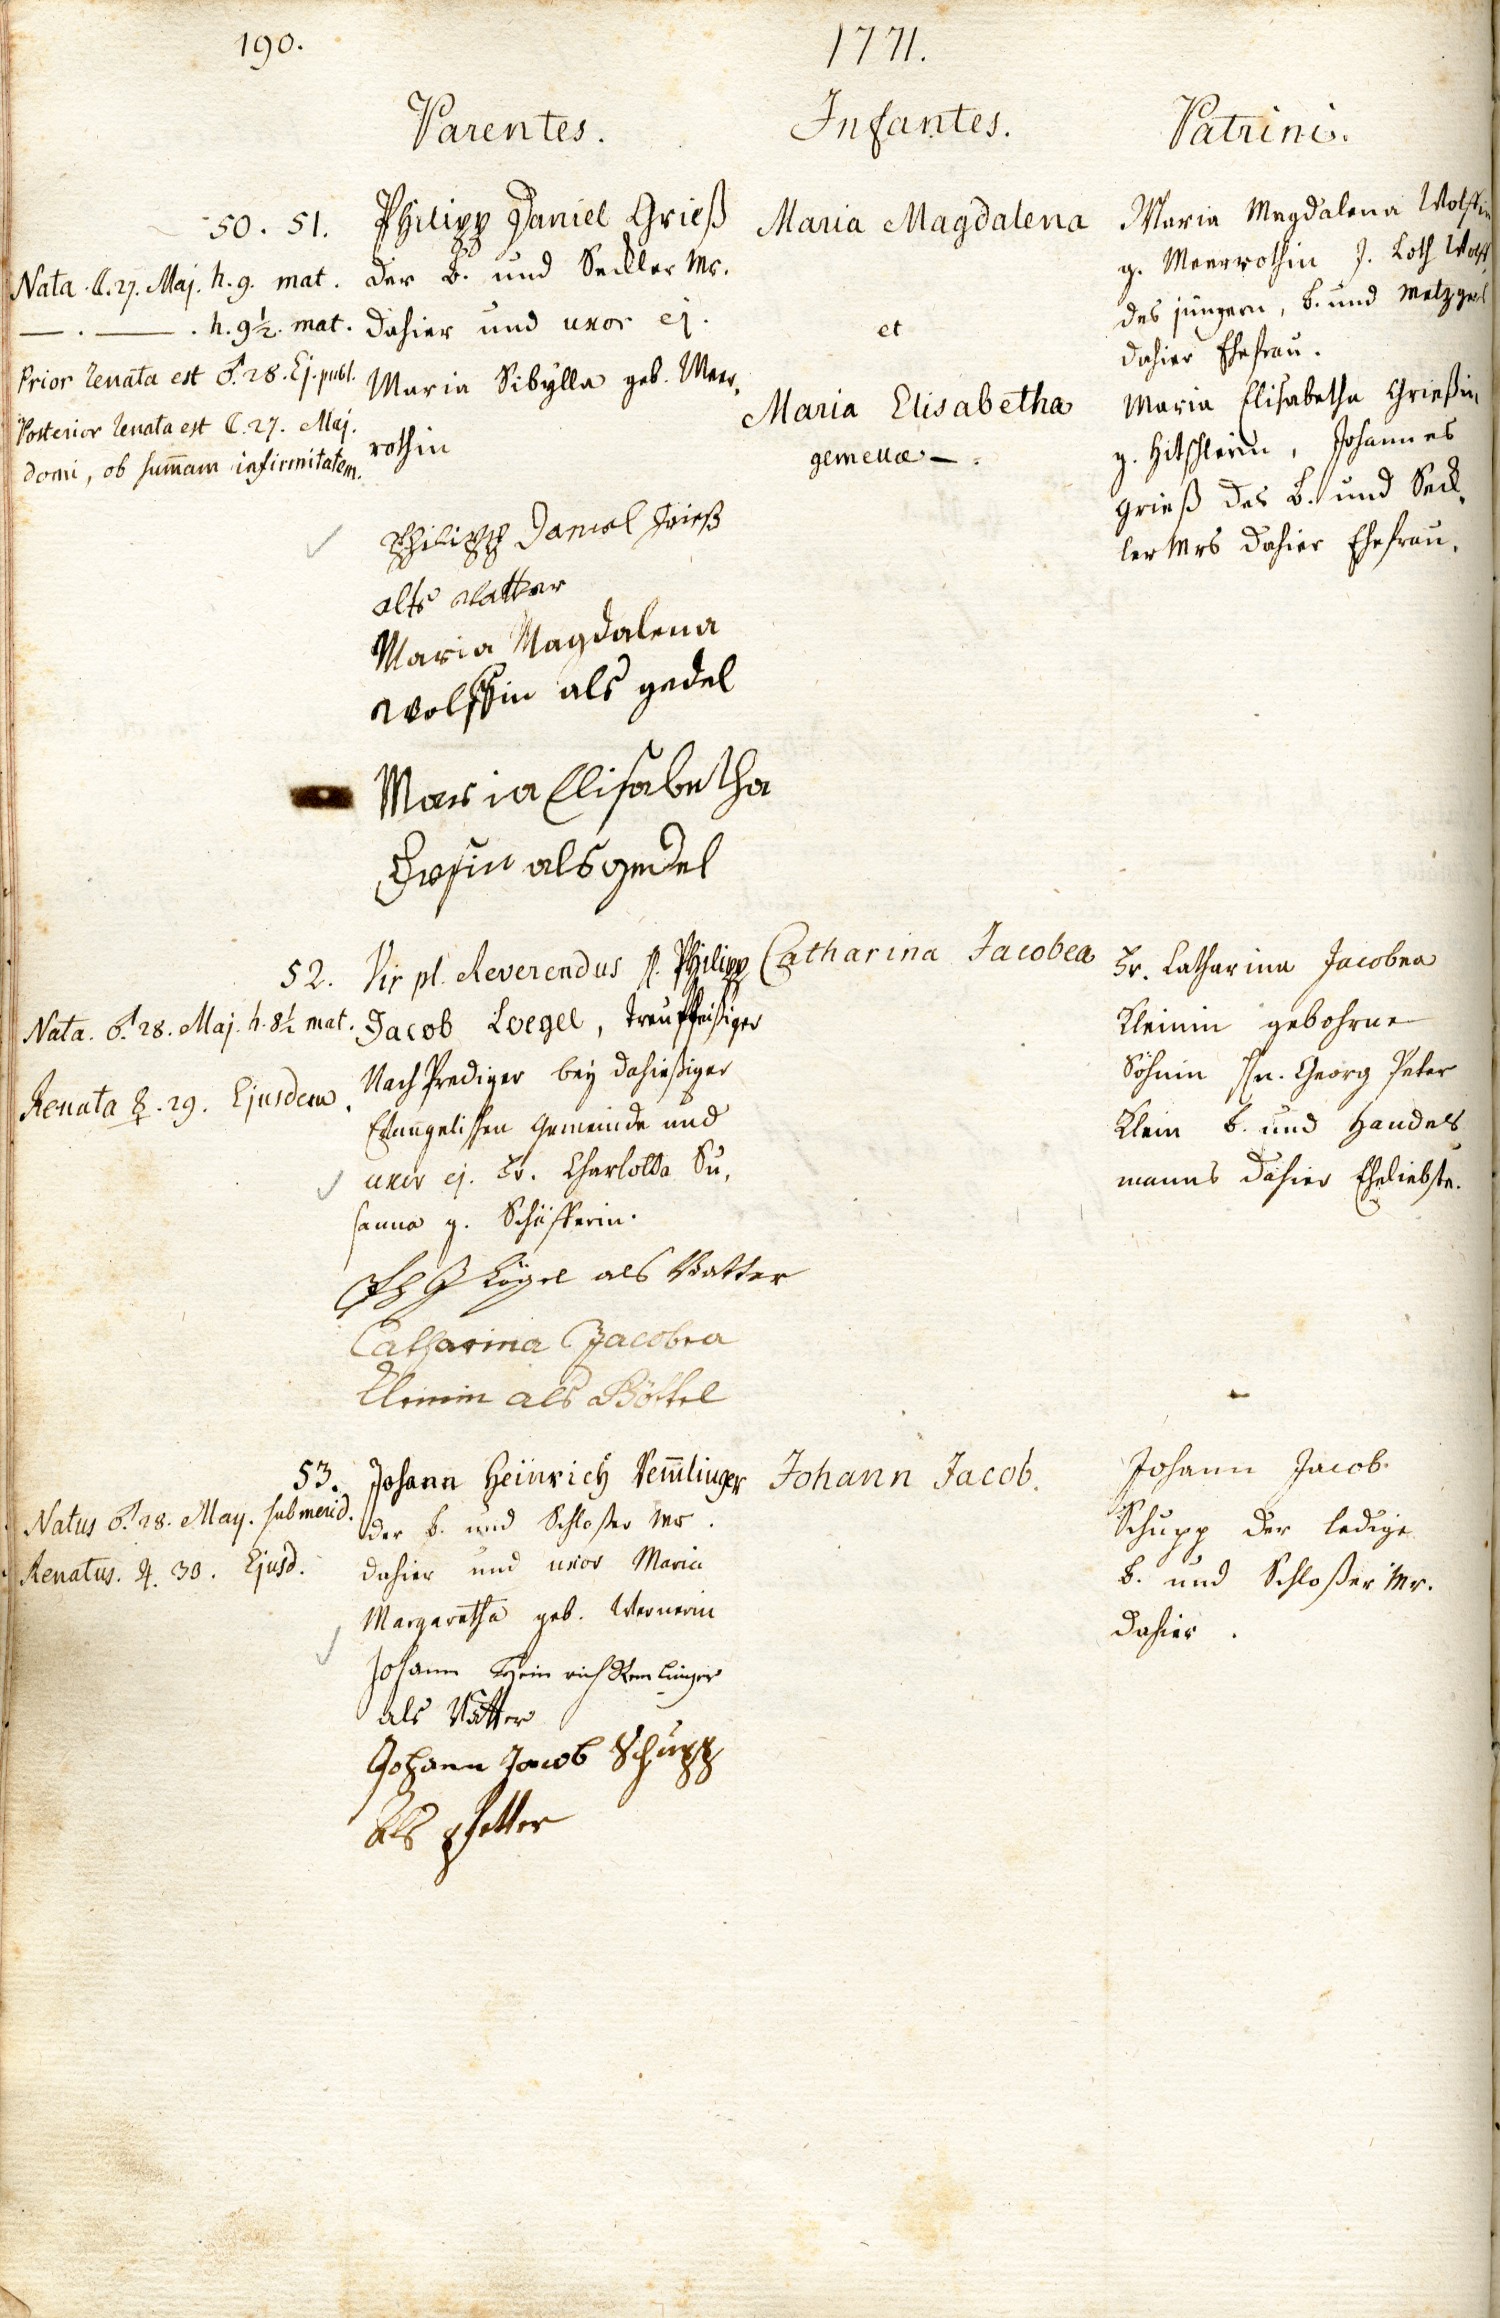 190.
1771.
Parentes.
Infantes.
Patrini.
50. 51.
Nata ☾. 27. Maj. h. 9. mat.
— . — . h. 9½. mat.
Prior renata est ♂. 28. Ej. publ.
Posterior renata est ☾. 27. Maj.
domi, ob sum̄am infirmitatem.
Philipp Daniel Grieß
der B. und Seckler Mr.
dahier und uxor ej.
Maria Sibylla geb. Meer,
rothin
Philipp Daniel Grieß
als vatter
Maria Magdalena
wolffin als gedel
Maria Elisabetha
als gedel
Maria Magdalena
et
Maria Elisabetha
gemellæ —.
Maria Magdalena Wolffin
g. Meerrothin J. Loth Wolff,
des jüngern, B. und Metzgers
dahier Ehefrau.
Maria Elisabetha Grießin,
g. Hitschlerin, Johannes
Grieß des B. und Seck,
ler Mrs dahier Ehefrau.
52.
Nata. ♂. 28. Maj. h. 8½ mat.
Renata ☿. 29. Ejusdem.
Vir pl. Reverendus H. Philipp
Jacob Loegel, treufleißiger
Nach Prediger bey dahießiger
Evangelischen Gemeinde und
uxor ej. Fr. Charlotta Su,
sanna g. Schäfferin.
Ph J Lögel als Vatter
Catharina Jacobea
Kleinin als Göttel
Catharina Jacobea
Fr. Catharina Jacobea
Kleinin gebohrne
Söhnin Hn. Georg Peter
Klein B. und Handels
manns dahier Eheliebste.
53.
Natus ♂. 28. May. sub merid.
Renatus. ♃. 30. Ejusd.
Johann Heinrich Rem̄linger
der B. und Schloßer Mr.
dahier und uxor Maria
Margaretha geb. Wernerin
Johann Heinrich Remlinger
als Vatter
Johann Jacob Schupp
als pfetter
Johann Jacob.
Johann Jacob
Schupp der ledige
B. und Schloßer Mr.
dahier.